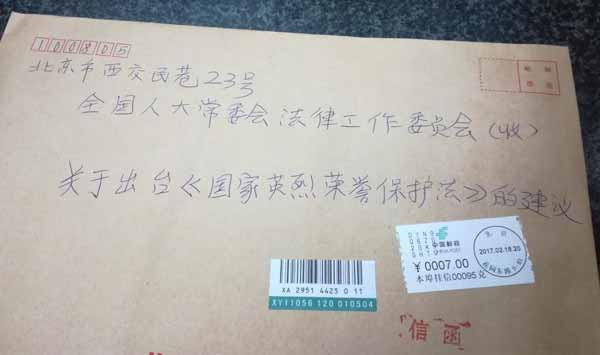 100805
北京市西交民巷23号
全国人大常委会法律工作委员会(收)
关于出台《国家英烈荣誉保护法》的建议
中国邮政
CHINA POST
¥0007.00
本埠挂信00095克
北京
2017.02.18.20
XA 2951 4425 0 11
XY11056 120 010504
信函